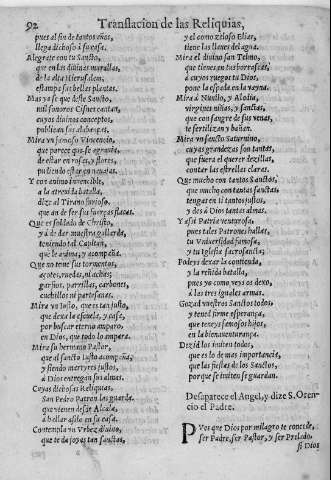 92 Translacion de las Reliquias,
pues al fin de tantos años,
llega dichoso à su casa.
Alegrate con tu Sancto,
que en las diuinas murallas,
de la alta Hierusalem,
estampa sus bellas plantas.
Mas ya se que deste Sancto,
mil sonoros Cisnes cantan,
cuyos diuinos conceptos,
publican sus alabanças.
Mira vn famoso Vincencio,
que parece que se agrauia,
de estar en roses, y flores,
pudiendo estar en nauajas.
Y con animo inuencible,
a la atreuida batalla,
dize al Tirano furioso,
que an de ser sus fuerças flacas.
Que es soldado de Christo,
y à de dar muestra gallarda,
teniendo tal Capitan,
que le anima, y acompaña.
Que no tome sus tormentos,
açotes, ruedas, ni aches,
garfios, parrillas, carbones,
cuchillos ni partesanas.
Mira vn Iusto, que es tan justo,
que dexa la escuela, y casa,
por buscar eterno amparo,
en Dios, que todo lo ampara.
Mira su hermano Pastor,
que al sancto Iusto acompaña,
y siendo martyres justos,
à Dios entregan sus almas.
Cuyas dichosas Reliquias,
San Pedro Patron las guarda,
que vienen desde Alcala,
à hallar asilo en su casa.
Contempla vn Vrbez diuino,
que te da joyas tan sanctas,
y el como zeloso Elias,
tiene las llaues del agua.
Mira el diuino san Telmo,
que tienes en tus borrascas,
à cuyos ruegos tu Dios,
pone la espada en la vayna.
Mira à Nunilo, y Alodia,
virgines niñas, y sanctas,
que con sangre de sus venas,
te fertilizan y bañan.
Mira vn sancto Saturnino,
cuyas grandezas son tantas,
que fuera el querer dezillas,
contar las estrellas claras.
Que mucho con tantos Sanctos,
que mucho con tantas sanctas
tengas en ti tantos justos,
y des à Dios tantas almas.
Y assi Patria venturosa,
pues tales Patrones hallas,
tu Vniuersidad famosa,
y tu Yglesia sacrosancta;
Podeys dexar la contienda,
y la reñida batalla,
pues yo como veys os dexo,
à los tres iguales armas.
Gozad vuestros Sanctos todos,
y tened firme esperança,
que teneys famosos hijos,
en la bienauenturança.
Dizid los imiten todos,
que es lo de mas importancia,
que las fiestas de los Sanctos,
porque se imiten se guardan.
Desaparece el Angel, y dize S. Orencio el Padre.
PVes que Dios por milagro te concede,
ser Padre, ser Pastor, y ser Preledo,
si Dios